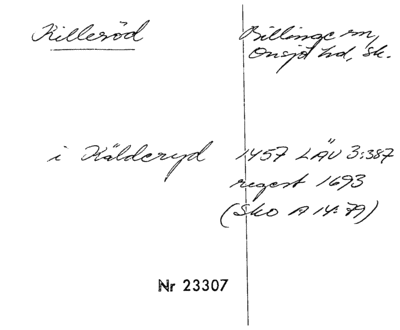 Killeröd
Billinge sn,
Onsjö hd, Sk.
i Kälderyd 1457 LÄU 3:387
regest 1693
(Sko A 14:79)
Nr 23307